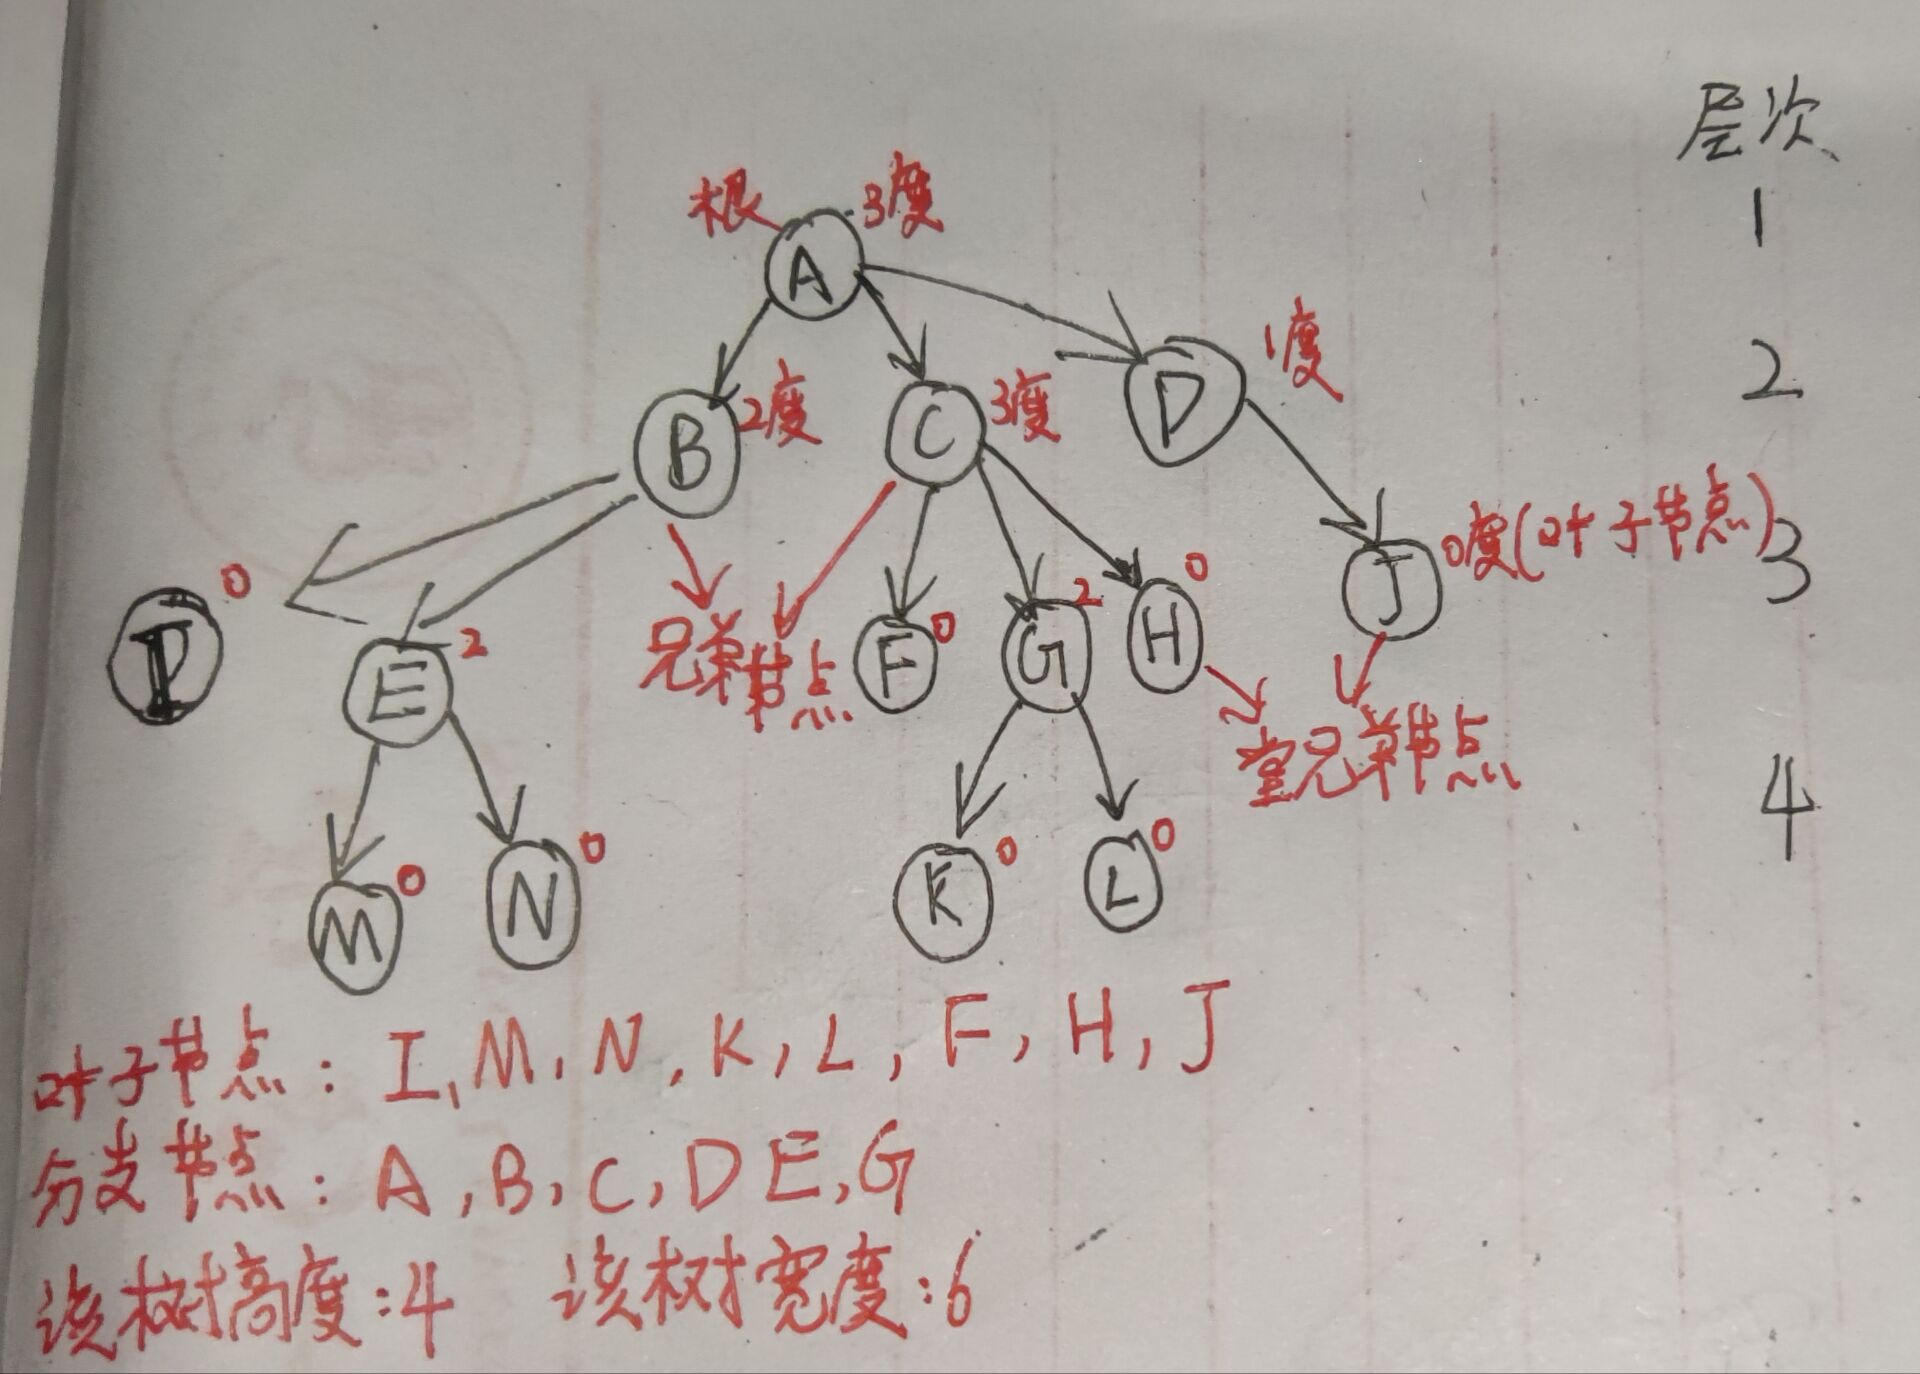 层次
根 A 3度 1
B 2度 C 3度 D 1度 2
I 0 E 2 F 0 G 2 H 0 J 0度(叶子节点) 3
兄弟节点
堂兄弟节点
M 0 N 0 K 0 L 0 4
叶子节点: I, M, N, K, L, F, H, J
分支节点: A, B, C, D E, G
该树高度:4 该树宽度:6